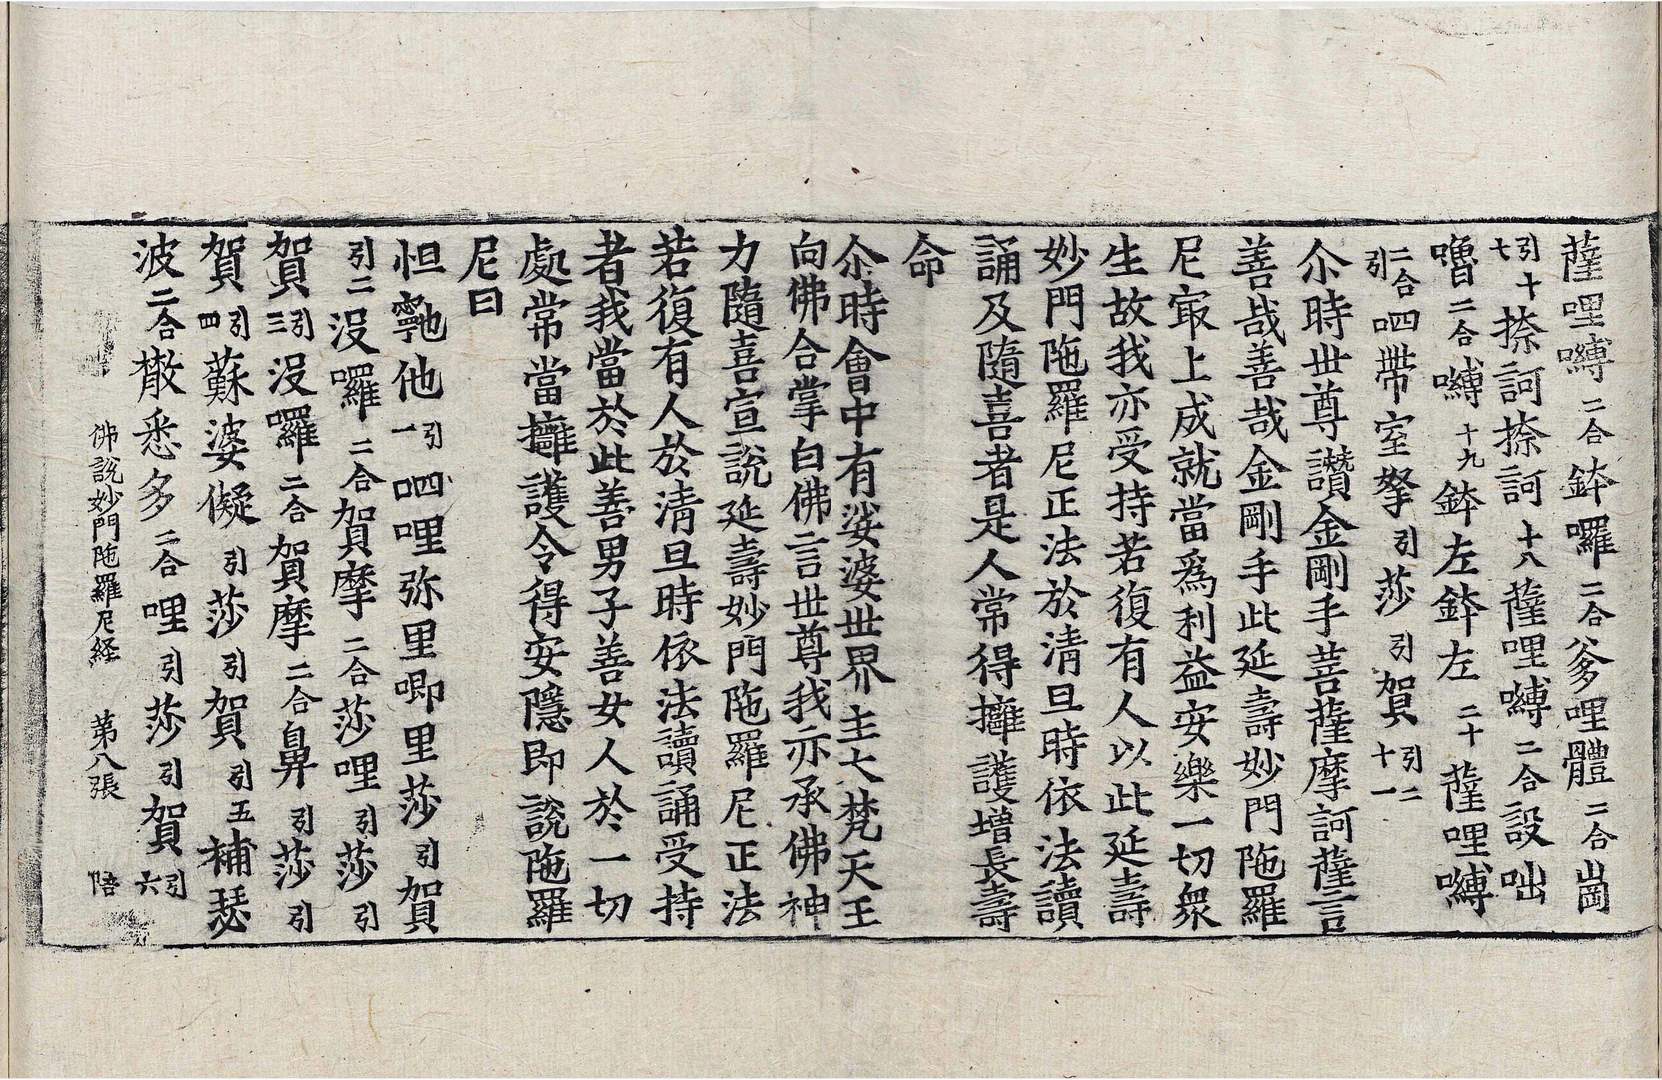 薩哩嚩二合鉢囉二合爹哩體二合崗
引十七捺訶捺訶十八薩哩嚩二合設咄
嚕二合嚩十九鉢左鉢左二十薩哩嚩
二合引呬帶室拏引莎引賀引二十一
尒時世尊讚金剛手菩薩摩訶薩言
善哉善哉金剛手此延壽妙門陁羅
尼㝡上成就當爲利益安樂一切衆
生故我亦受持若復有人以此延壽
妙門陁羅尼正法於清旦時依法讀
誦及隨喜者是人常得擁護增長壽
命
尒時會中有娑婆世界主大梵天王
向佛合掌白佛言世尊我亦承佛神
力隨喜宣說延壽妙門陁羅尼正法
若復有人於清旦時依法讀誦受持
者我當於此善男子善女人於一切
處常當擁護令得安隱即說陁羅
尼曰
怛𩕳他引一呬哩弥里唧里莎引賀
引二没囉二合賀摩二合莎哩引莎引
賀引三没囉二合賀摩二合鼻引莎引
賀引四蘇婆儗引莎引賀引五補瑟
波二合橵悉多二合哩引莎引賀引六
佛說妙門陁羅尼経 第八張 陪